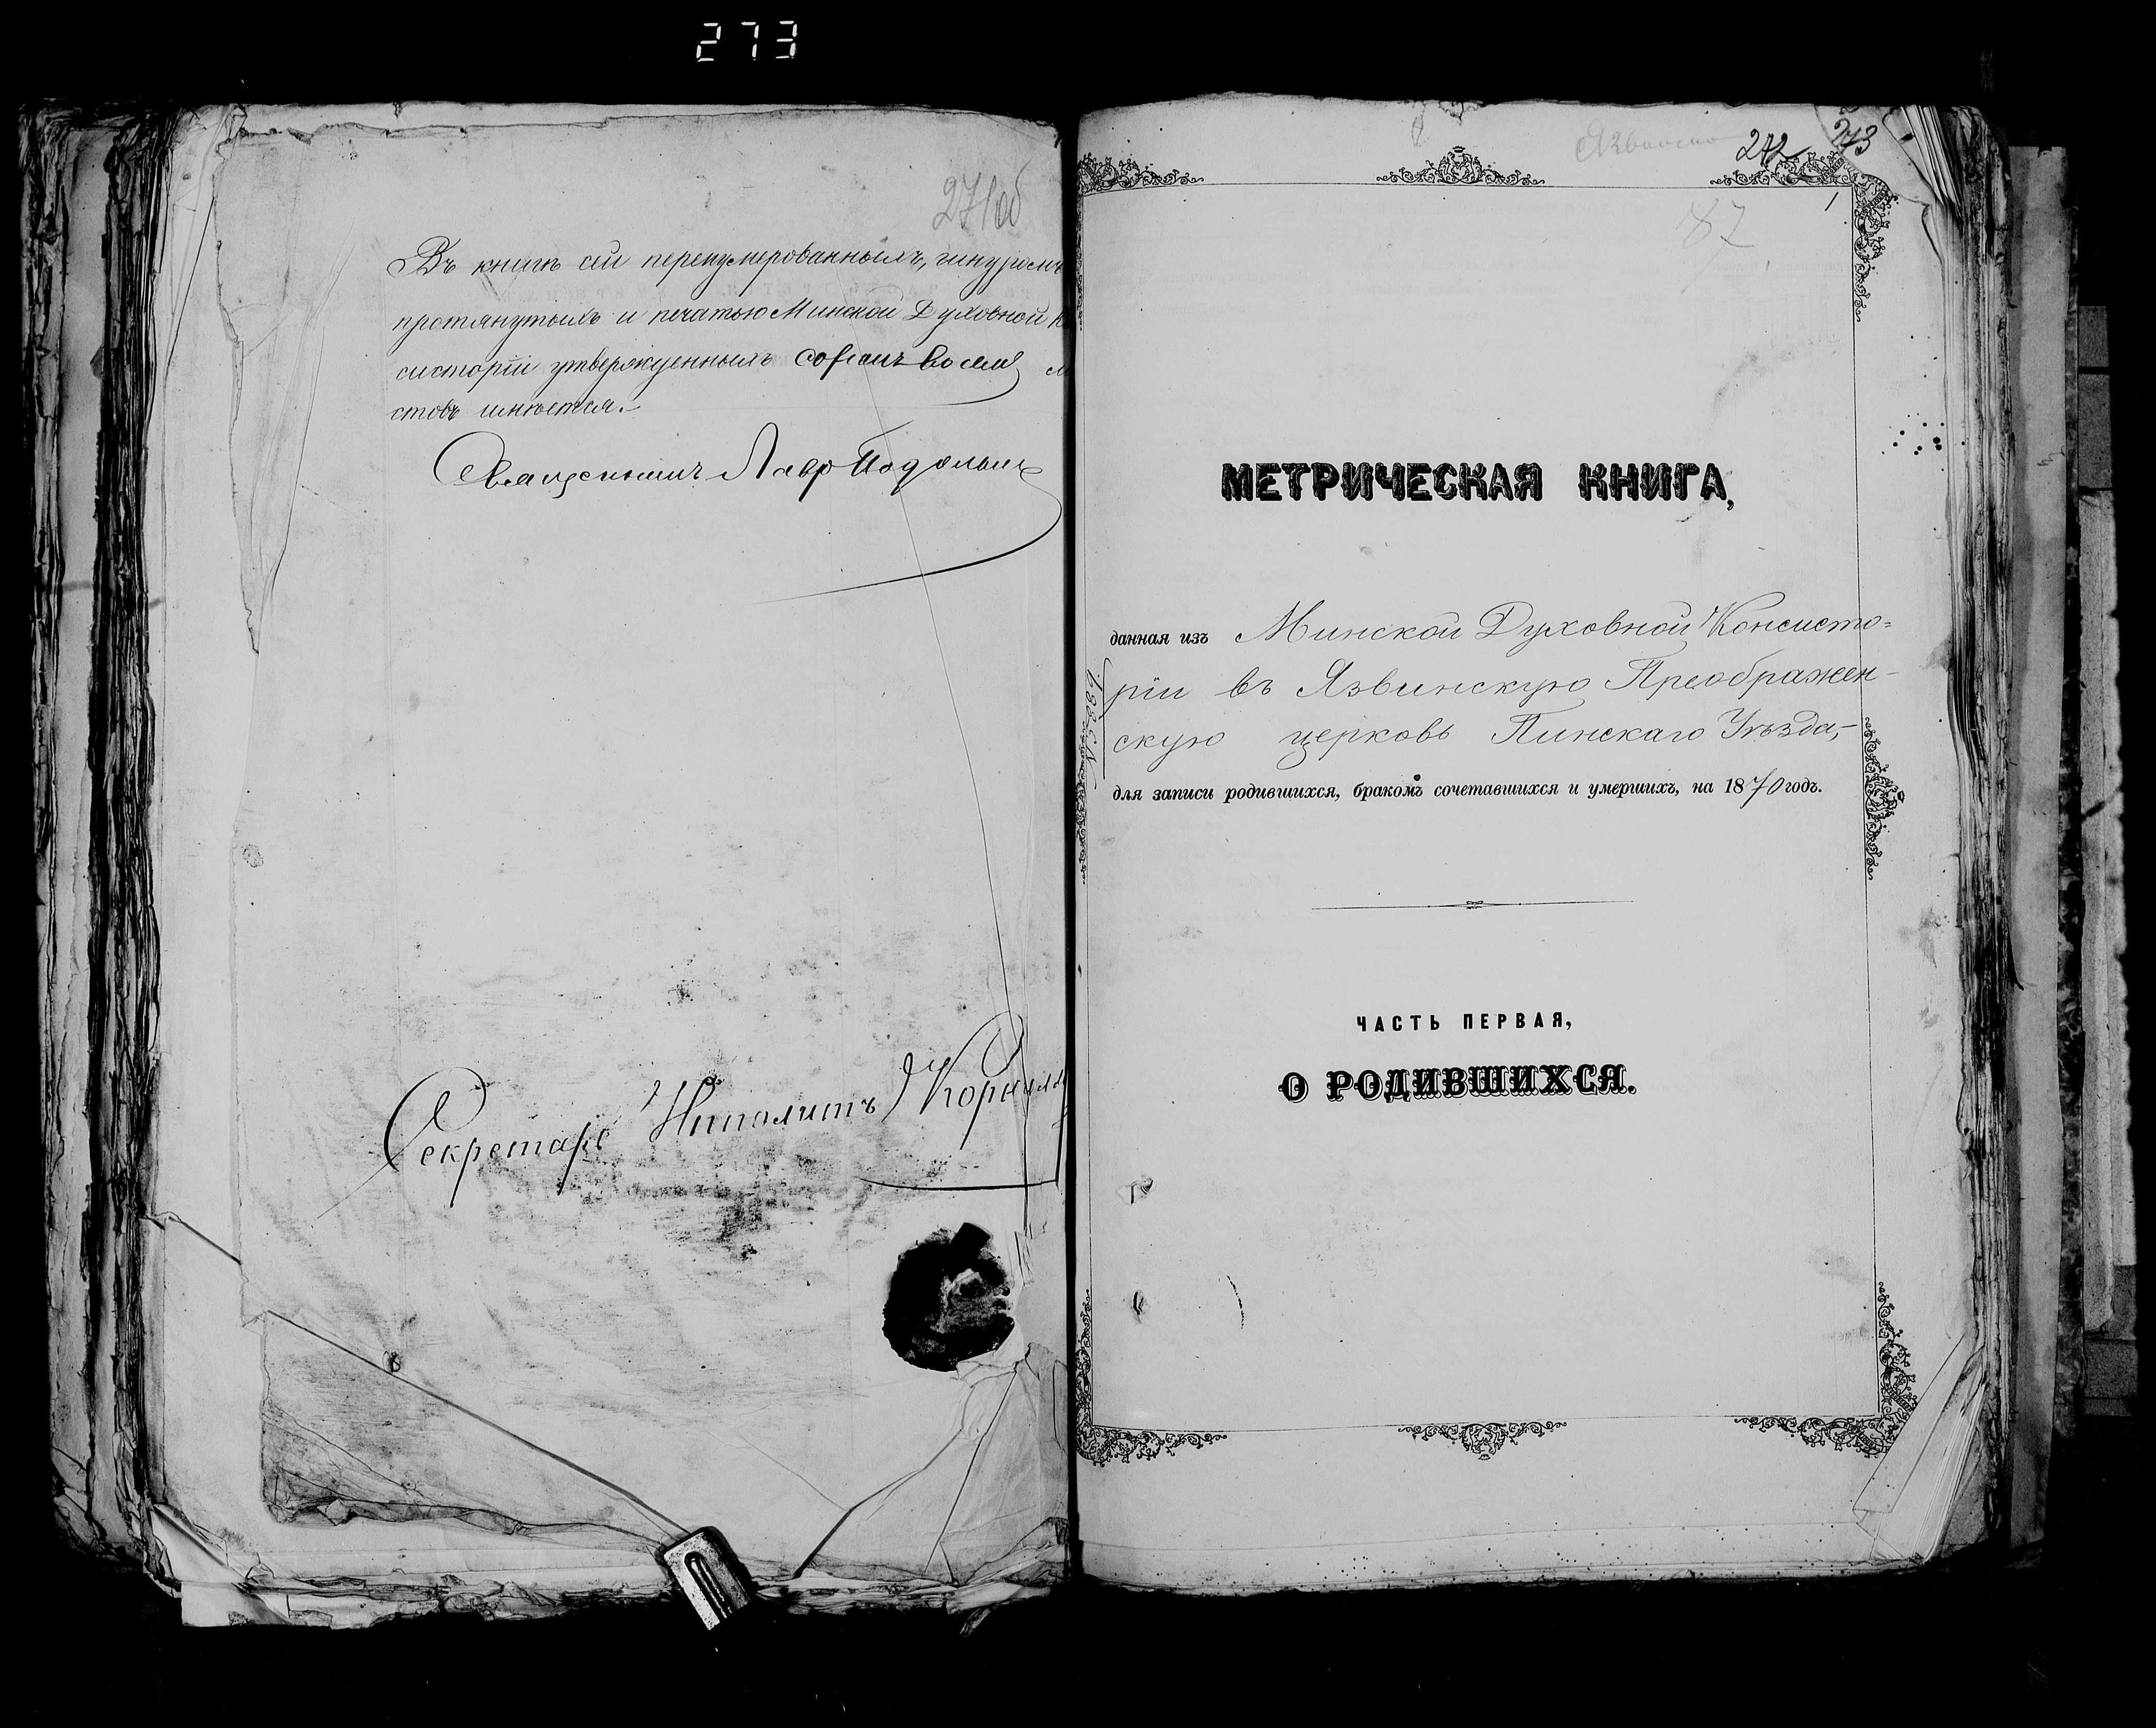 273
271об
Въ книгѣ сей перенумерованныхъ, шнуромъ
протянутыхъ и печатью Минской Духовной К
систоріи утвержденныхъ сорокъ восемь
стовъ имѣется.
Священникъ Лавръ
Секретарь Ипполитъ
272 273
1
87
МЕТРИЧЕСКАЯ КНИГА,
данная изъ Минской Духовной Консисто=
ріи въ Язвинскую Преображен-
скую церковь Пинскаго Уѣзда,-
для записи родившихся, бракомъ сочетавшихся и умершихъ, на 1870 годъ.
ЧАСТЬ ПЕРВАЯ,
О РОДИВШИХСЯ.